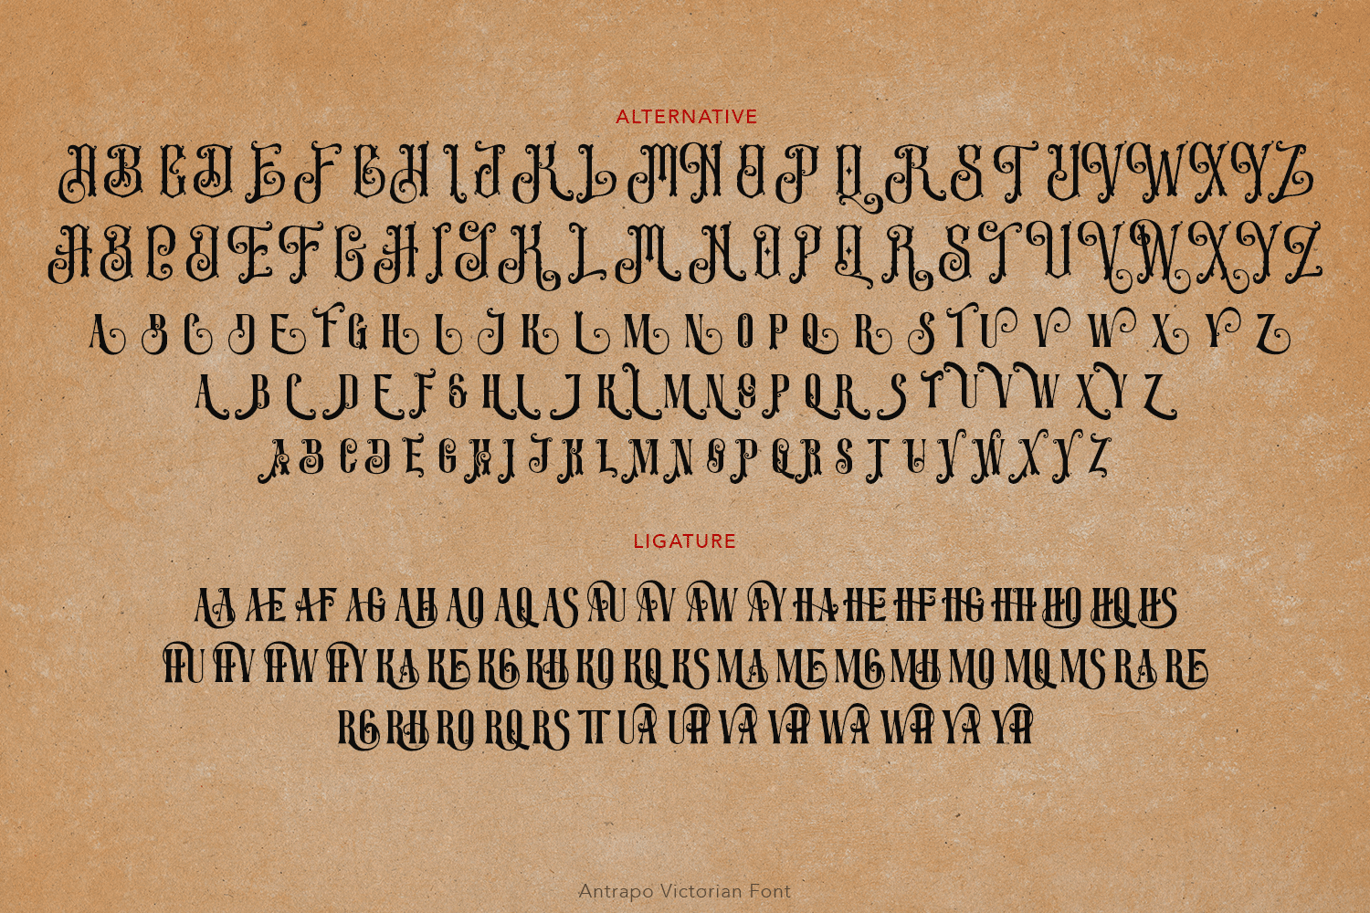 ALTERNATIVE
A B C D E F G H I J K L M N O P Q R S T U V W X Y Z
A B C D E F G H I J K L M N O P Q R S T U V W X Y Z
A B C D E F G H I J K L M N O P Q R S T U V W X Y Z
A B C D E F G H I J K L M N O P Q R S T U V W X Y Z
A B C D E G H I J K L M N O P Q R S T U V W X Y Z
LIGATURE
AA AE AF AG AH AO AQ AS AU AV AW AY HA HE HF HG HH HO HQ HS
HU HV HW HY KA KE KG KH KO KQ KS MA ME MG MH MO MQ MS RA RE
RG RH RO RQ RS TT UA UH VA VH WA WH YA YH
Antrapo Victorian Font